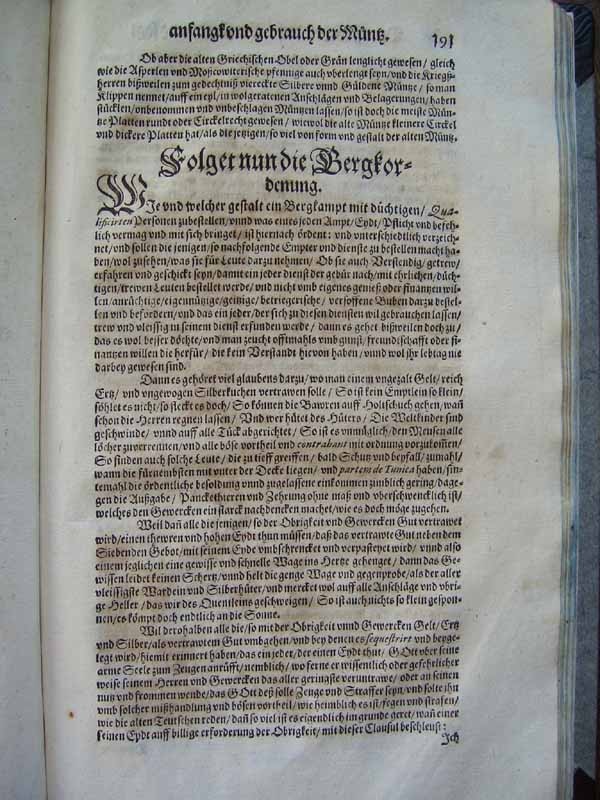 anfangk vnd gebrauch der Müntz. 191
Ob aber die alten Griechischen Obel oder Grån lenglicht gewesen / gleich
wie die Asperlen vnd Moscowiterische pfennige auch vberlengt seyn / vnd die Kriegß-
herren bißweilen zum gedechtniß viereckte Silbere vnnd Güldene Müntze / so man
Klippen nennet / auff ein eyl / in wolgeratenen Anschlägen vnd Belagerungen / haben
stücklen / vnbenommen vnd vnbeschlagen Müntzen lassen / so ist doch die meiste Mün-
tze Platten rundt oder Circkelrecht gewesen / wiewol die alte Müntze kleinere Circkel
vnd dickere Platten hat / als die jetzigen / so viel von form vnd gestalt der alten Müntz.
Folget nun die Bergkor-
denung.
WIe vnd welcher gestalt ein Bergkampt mit düchtigen / Qua-
lificirten Personen zubestellen / vnnd was eines jeden Ampt / Eydt / Pflicht vnd befeh-
lich vermag vnd mit sich bringet / ist hiernach ördent: vnd vnterschiedtlich verzeich-
net / vnd sollen die jenigen / so nachfolgende Empter vnd dienste zu bestellen macht ha-
ben / wol zusehen / was sie für Leute darzu nehmen / Ob sie auch Verstendig / getrew /
erfahren vnd geschickt seyn / damit ein jeder dienst der gebür nach / mit ehrlichen / düch-
tigen / trewen Leuten bestellet werde / vnd nicht vmb eigenes genieß oder finantzen wil-
len / anrüchtige / eigennützige / geitzige / betriegerische / versoffene Buben darzu bestel-
len vnd befordern / vnd das ein jeder / der sich zu diesen diensten wil gebrauchen lassen /
trew vnd vleissig in seinem dienst erfunden werde / dann es gehet bißweilen doch zu /
das es wol besser döchte / vnd man zeucht offtmahls vmb gunst / freundtschafft oder fi-
nantzen willen die herfür / die kein Verstandt hievon haben / vnnd wol jhr lebtag nie
darbey gewesen sind.
Dann es gehöret viel glaubens darzu / wo man einem vngezalt Gelt / reich
Ertz / vnd vngewogen Silberkuchen vertrawen solle / So ist kein Emptlein so klein /
söhlet es nicht / so steckt es doch / So können die Bawren auff Holtzschuch gehen / wañ
schon die Herren regnen lassen / Vnd wer hütet des Hüters / Die Weltkinder sind
geschwinde / vnnd auff alle Tück abgerichtet / So ist es vnmüglich / den Meusen alle
löcher zuverrennen / vnd alle böse vortheil vnd contrabant mit ordnung vorzukom̃en /
So finden auch solche Leute / die zu tieff greiffen / bald Schutz vnd beyfall / zumahl /
wann die fürnembsten mit vnter der Decke liegen / vnd partem de Tunica haben / sin-
temahl die ördentliche besoldung vnnd zugelassene einkommen zimblich gering / dage-
gen die Außgabe / Panckethieren vnd Zehrung ohne maß vnd vberschwencklich ist /
welches den Gewercken ein starck nachdencken machet / wie es doch möge zugehen.
Weil dañ alle die jenigen / so der Obrigkeit vnd Gewercken Gut vertrawet
wird / einen thewren vnd hohen Eydt thun müssen / daß das vertrawte Gut neben dem
Siebenden Gebot / mit seinem Eyde vmbschrencket vnd verpasteyet wird / vnnd also
einem jeglichen eine gewisse vnd schnelle Wage ins Hertze gehenget / dann das Ge-
wissen leidet keinen Schertz / vnnd helt die genge Wage vnd gegenprobe / als der aller
vleissigste Wardein vnd Silberhüter / vnd mercket wol auff alle Anschläge vnd vbri-
ge Heller / das wir des Quentleins geschweigen / So ist auch nichts so klein gespon-
nen / es kömpt doch endtlich an die Sonne.
Wil derohalben alle die / so mit der Obrigkeit vnnd Gewercken Gelt / Ertz
vnd Silber / als vertrawtem Gut vmbgehen / vnd bey denen es sequestrirt vnd beyge-
legt wird / hiemit erinnert haben / das ein jeder / der einen Eydt thut / GOtt vber seine
arme Seele zum Zeugen anrüfft / nemblich / wo ferne er wissentlich oder gefehrlicher
weise seinem Herren vnd Gewercken das aller geringste veruntrawe / oder an seinen
nutz vnd frommen wende / das GOtt deß solle Zeuge vnd Straffer seyn / vnd solle jhn
vmb solcher mißhandlung vnd bösen vortheil / wie heimlich es ist / fegen vnd strafen /
wie die alten Teutschen reden / dañ so viel ist es eigendtlich im grunde geret / wañ einer
seinen Eydt auff billige erforderung der Obrigkeit / mit dieser Clausul beschleust:
Jch